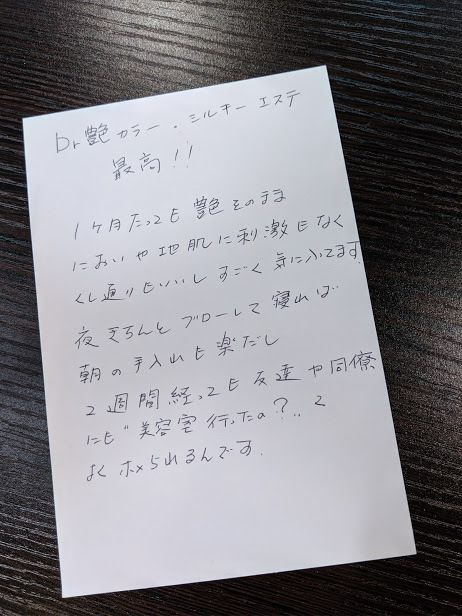 Dr艶カラー・ミルキーエステ
最高!!
1ヶ月たっても艶そのまま
においや地肌に刺激もなく
くし通りもいいしすごく気に入ってます
夜きちんとブローして寝れば
朝の手入れも楽だし
2週間経っても友達や同僚
にも"美容室行ったの?"と
よくホメられるんです.